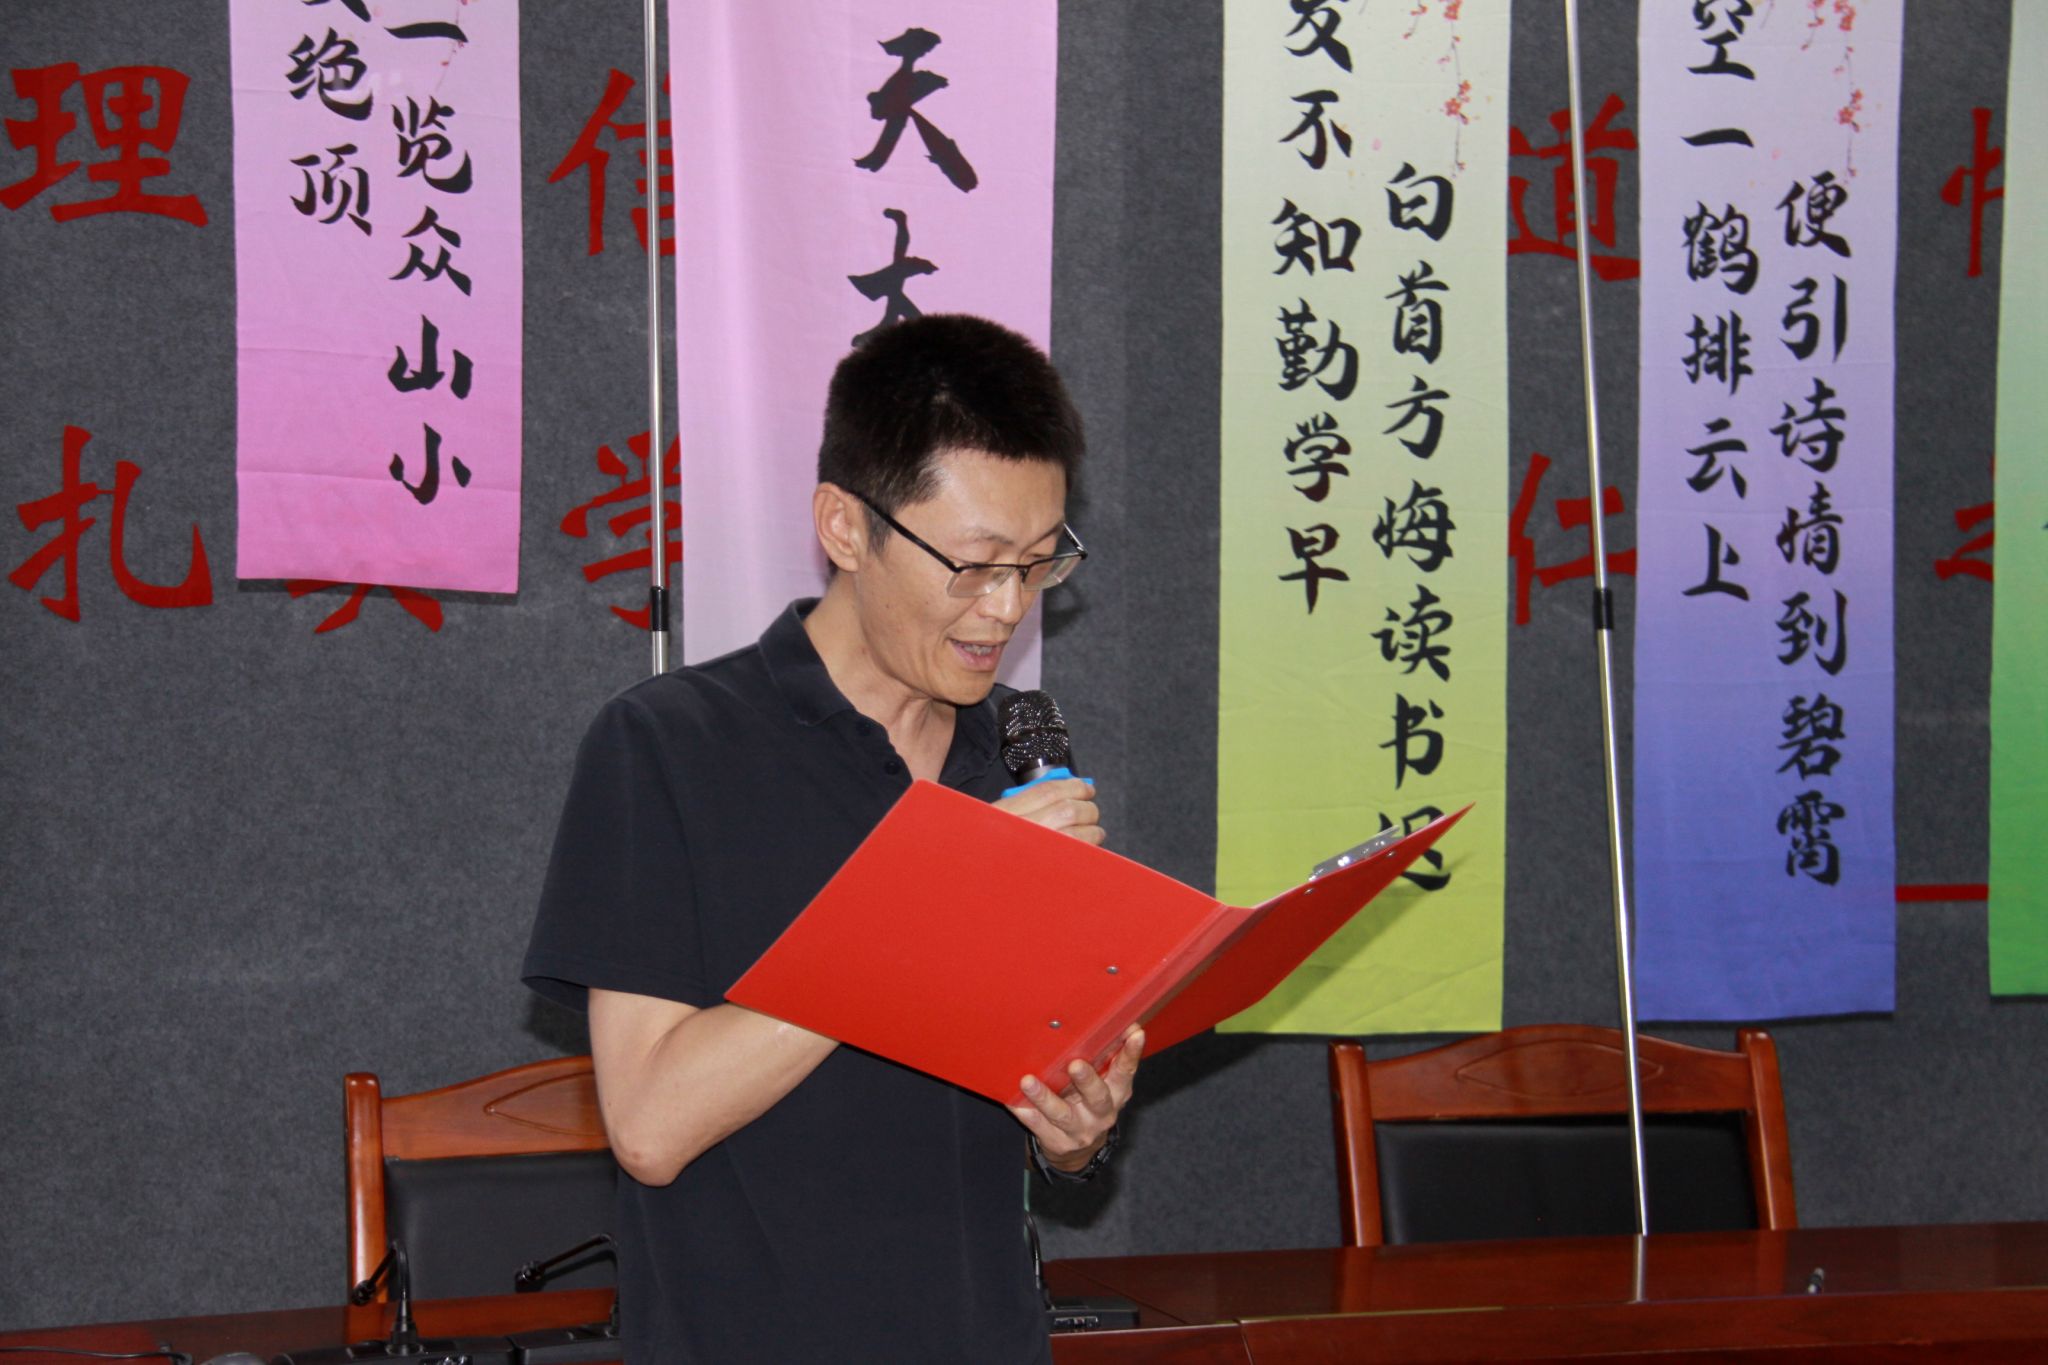 绝顶
一览众山小
天
发不知勤学早
白首方悔读书迟
空一鹤排云上
便引诗情到碧霄
理
信
道
扎
学
仁